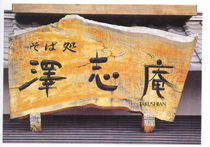 そば処
澤志庵
TAKUSHIAN